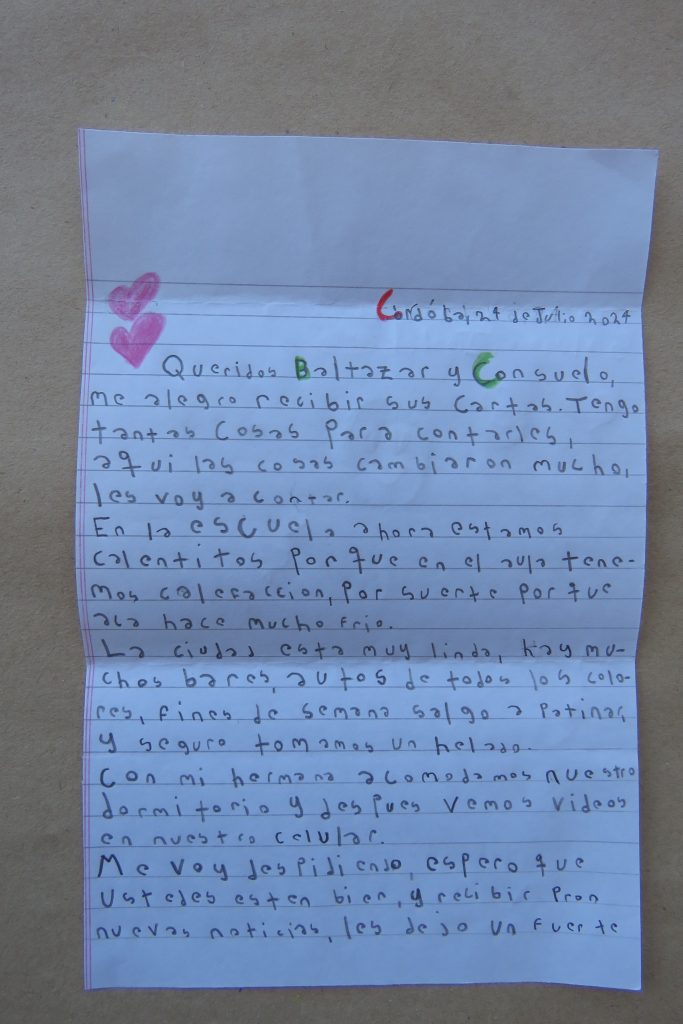 Cordóba, 24 de Julio 2024
Queridos Baltazar y Consuelo,
me alegro recibir sus cartas. Tengo
tantas cosas para contarles,
aqui las cosas cambiaron mucho,
les voy a contar.
En la escuela ahora estamos
calentitos porque en el aula tene-
mos calefaccion, por suerte porque
aca hace mucho frio.
La ciudad esta muy linda, hay mu-
chos bares, autos de todos los colo-
res, fines de semana salgo a patinar,
y seguro tomamos un helado.
Con mi hermana acomodamos nuestro
dormitorio y despues vemos videos
en nuestro celular.
Me voy despidiendo, espero que
ustedes esten bien, y recibir pron
nuevas noticias, les dejo un fuerte